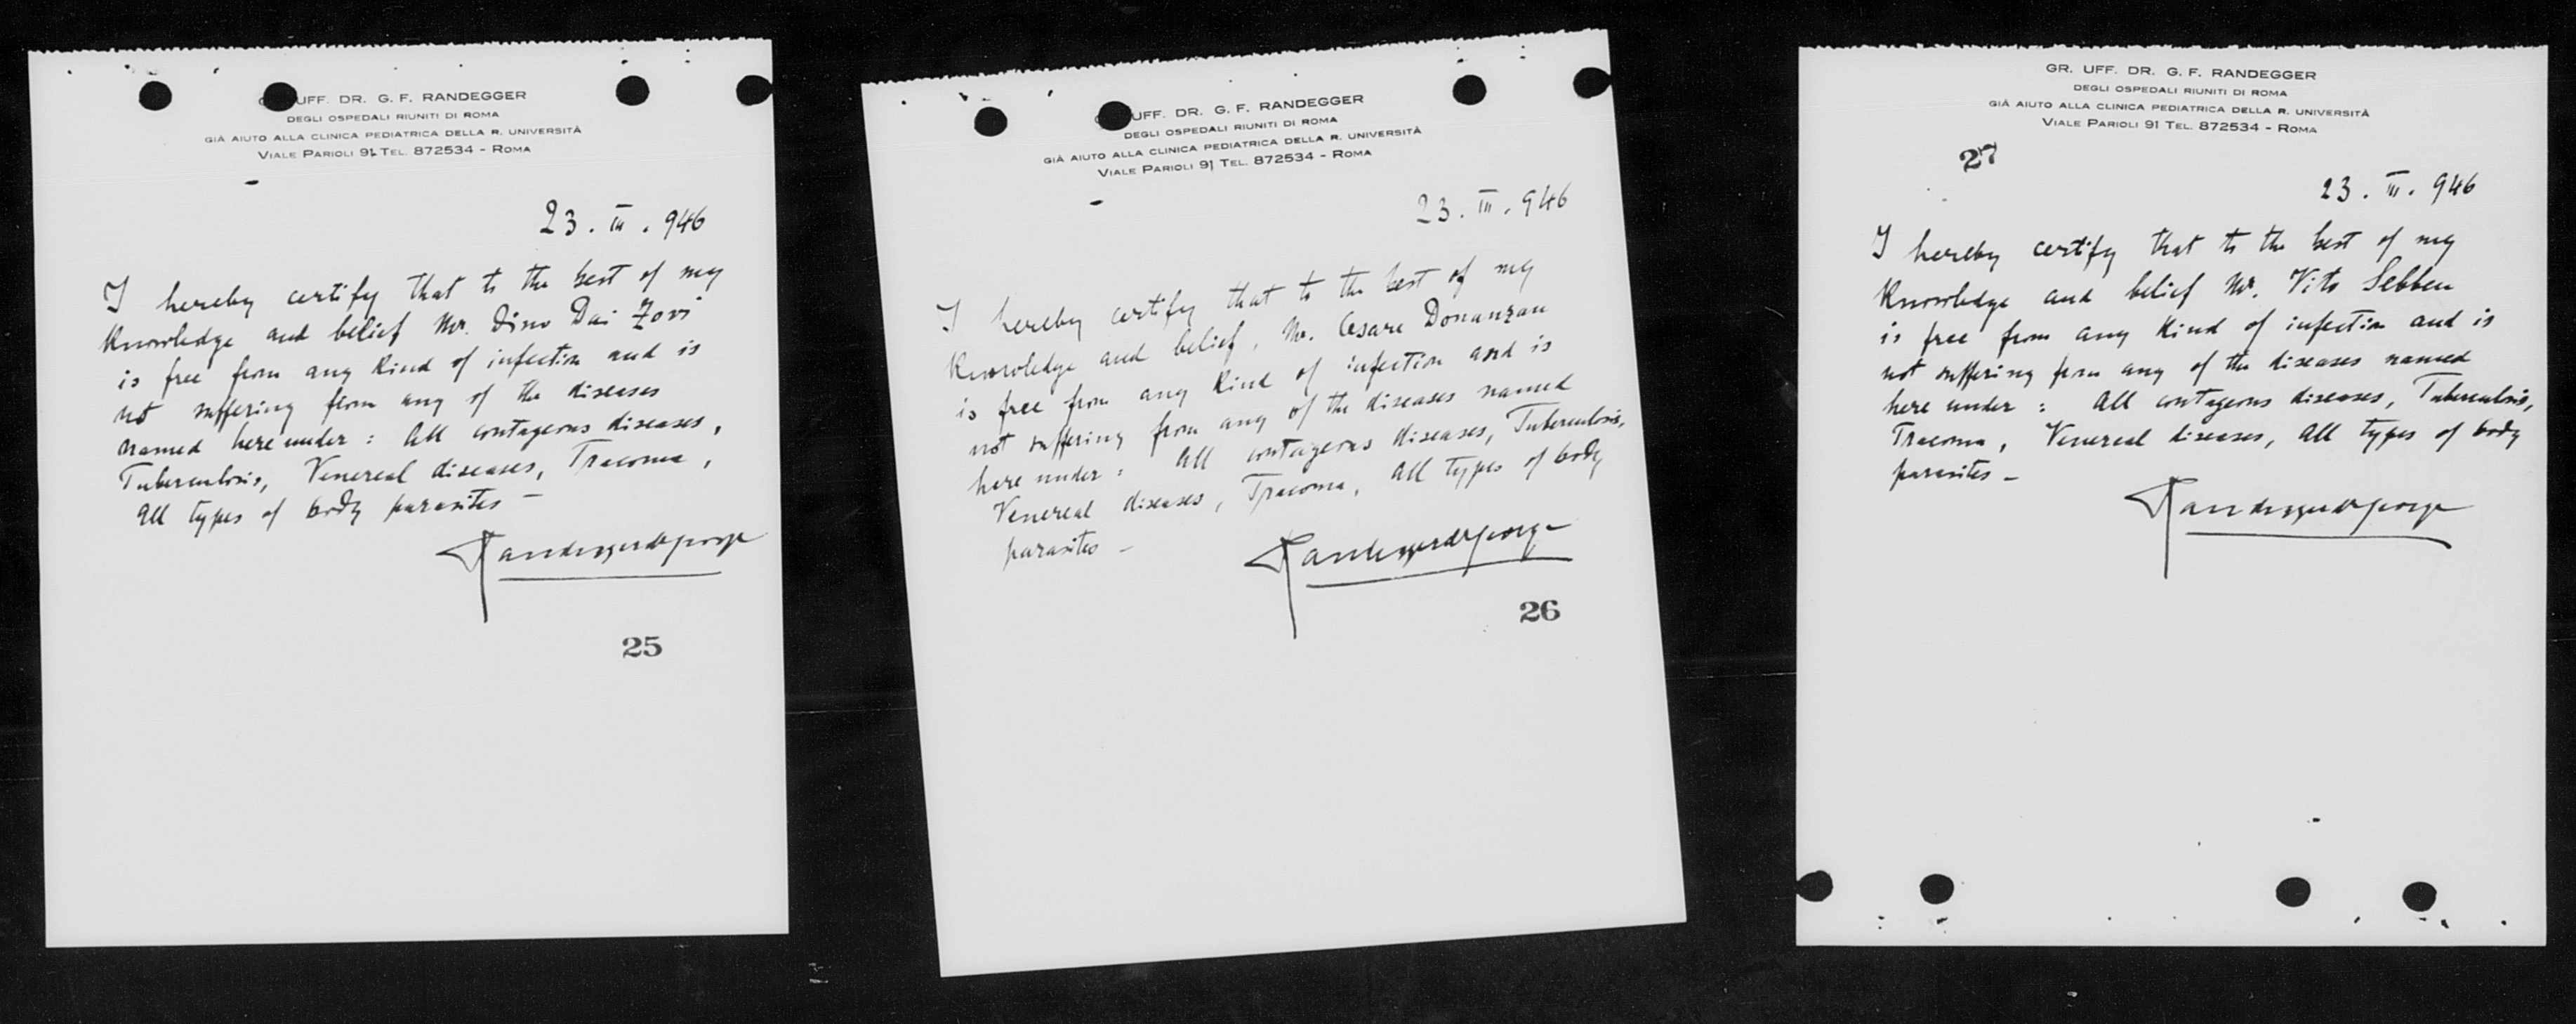 UFF. DR. G. F. RANDEGGER
DEGLI OSPEDALI RIUNITI DI ROMA
GIÀ AIUTO ALLA CLINICA PEDIATRICA DELLA R. UNIVERSITÀ
VIALE PARIOLI 91 TEL. 872534 - ROMA
23. III. 946
I hereby certify that to the best of my
Knowledge and belief Mr. Dino Dai Zovi
is free from any kind of infection and is
not suffering from any of the diseases
named here under : All contageous diseases,
Tuberculosis, Venereal diseases, Tracoma,
all types of body parasites -
25
UFF. DR. G. F. RANDEGGER
DEGLI OSPEDALI RIUNITI DI ROMA
GIÀ AIUTO ALLA CLINICA PEDIATRICA DELLA R. UNIVERSITÀ
VIALE PARIOLI 91 TEL. 872534 - ROMA
23. III. 946
I hereby certify that to the best of my
Knowledge and belief, Mr. Cesare Donanzan
is free from any kind of infection and is
not suffering from any of the diseases named
here under : All contageous diseases, Tuberculosis,
Venereal diseases, Tracoma, all types of body
parasites -
26
GR. UFF. DR. G. F. RANDEGGER
DEGLI OSPEDALI RIUNITI DI ROMA
GIÀ AIUTO ALLA CLINICA PEDIATRICA DELLA R. UNIVERSITÀ
VIALE PARIOLI 91 TEL. 872534 - ROMA
27
23. III. 946
I hereby certify that to the best of my
Knowledge and belief Mr. Vito Sebben
is free from any kind of infection and is
not suffering from any of the diseases named
here under : All contageous diseases, Tuberculosis,
Tracoma, Venereal diseases, all types of body
parasites -